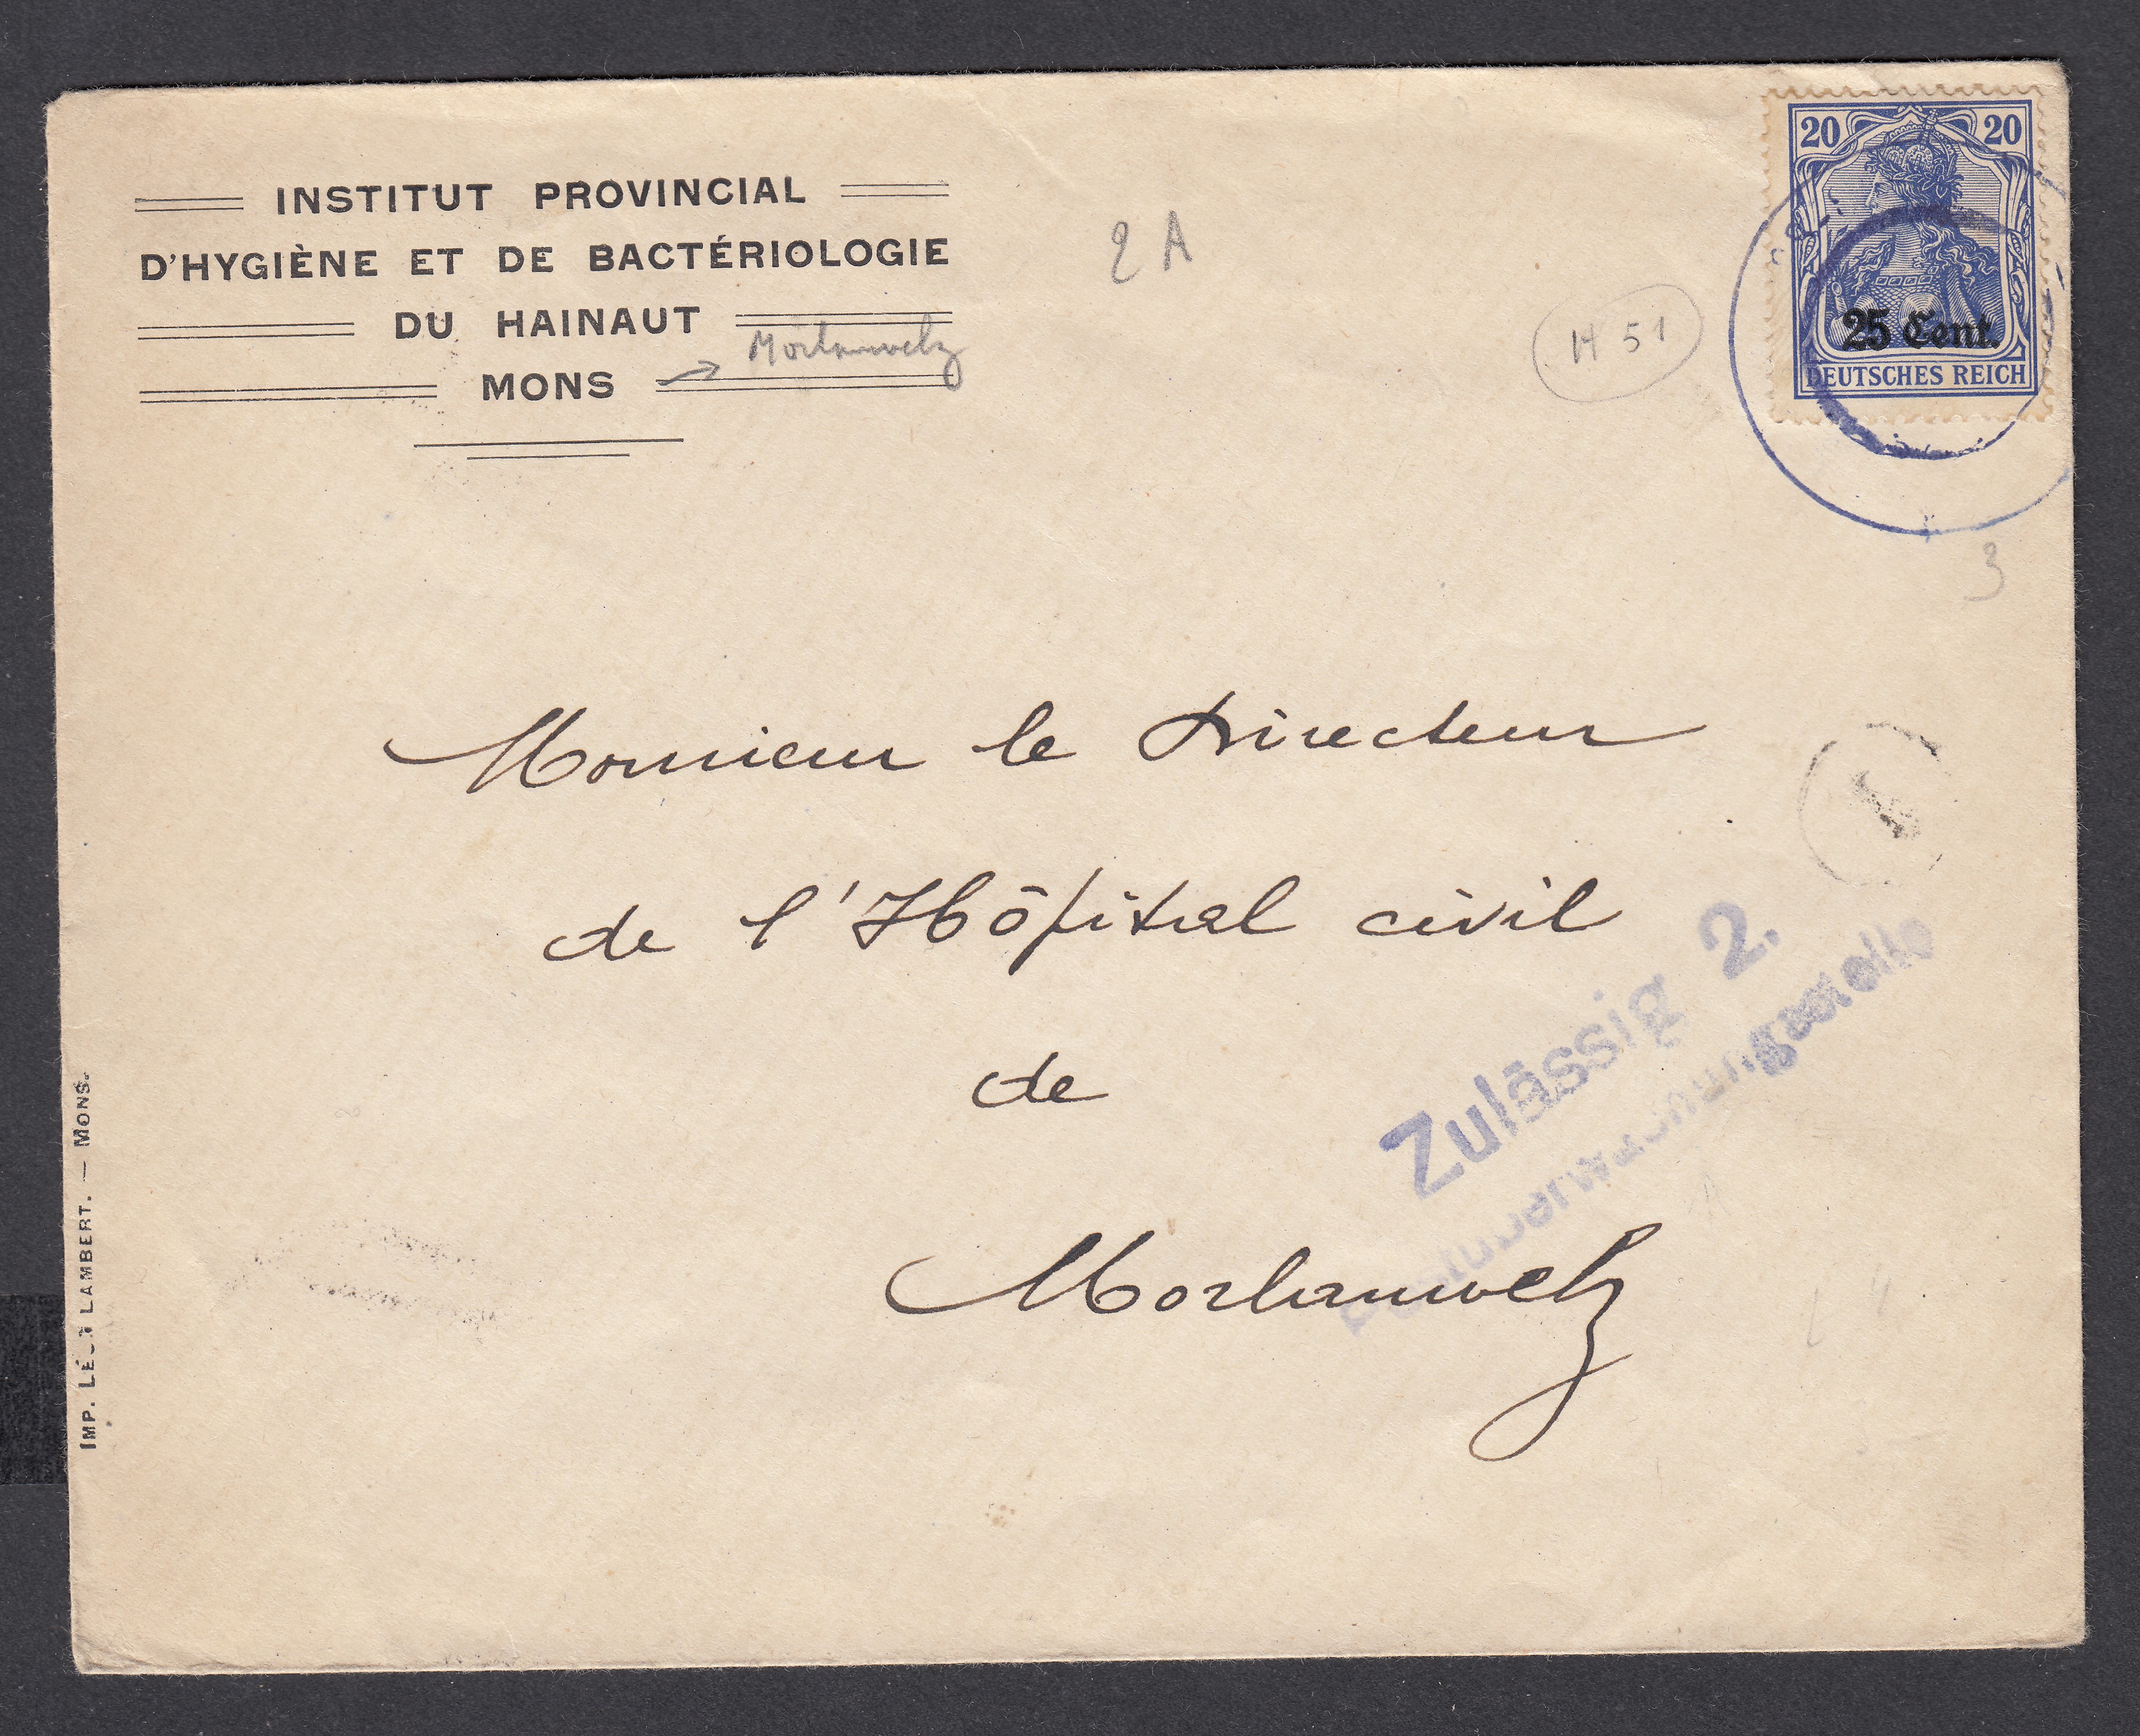 INSTITUT PROVINCIAL
D'HYGIÈNE ET DE BACTÉRIOLOGIE
DU HAINAUT
MONS
Morlanwelz
2 A
H 51
20 20
25 Cent.
DEUTSCHES REICH
3
Monsieur le Directeur
de l'Hôpital civil
de
Morlanwelz
1
Zulässig 2.
Postüberwachungsstelle
IMP. LÉON LAMBERT. — MONS.